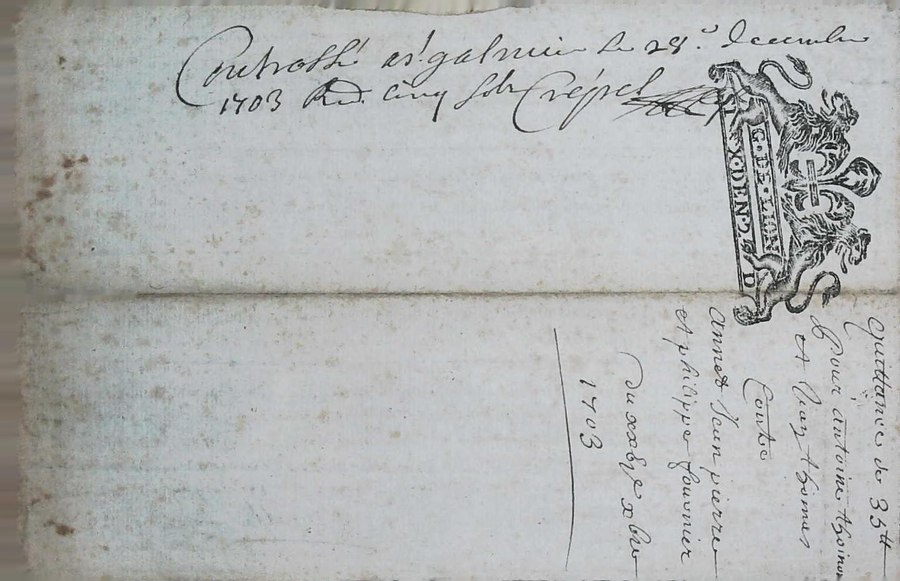 Controllé a st galmier le 28.e decembre
1703 Red. cinq sols Crépel
G. DE. LION
X. DEN. 2. D
quittance de 35tt
pour antoine thoma
et thomas
Contre
annet Jean pierre
et philippe fournier
du xxbre
1703